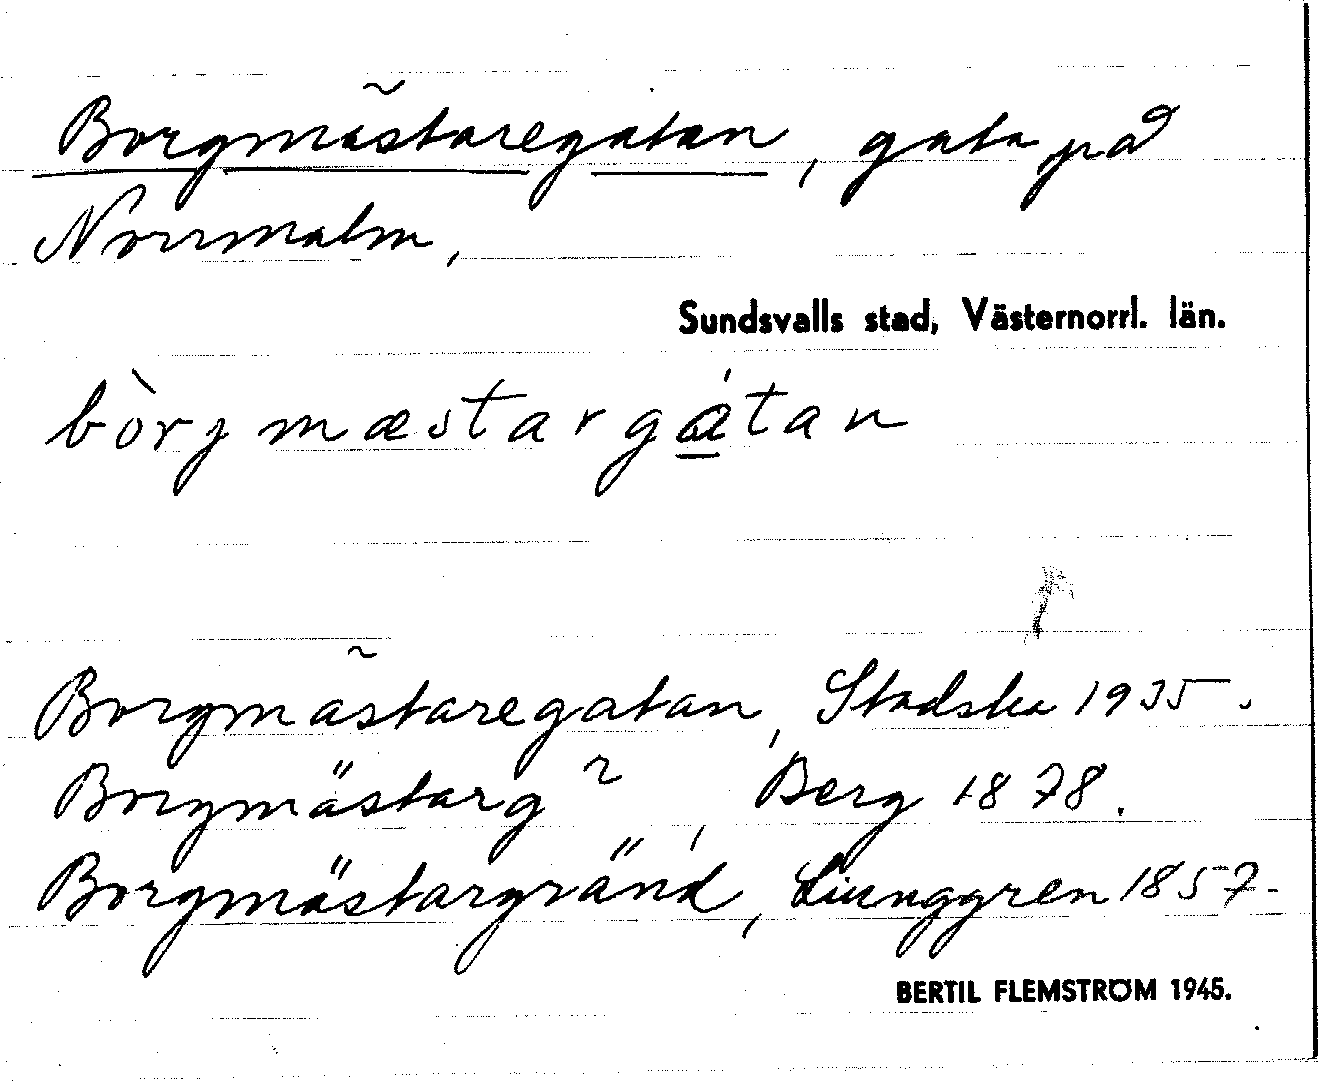 Borgmästaregatan, gata på
Norrmalm,
Sundsvalls stad, Västernorrl. län.
bòrjmæstargátan
Borgmästaregatan, Stadska 1935.
Borgmästarg ~, Berg 1878.
Borgmästargränd, Liunggren 1857.
BERTIL FLEMSTRÖM 1945.